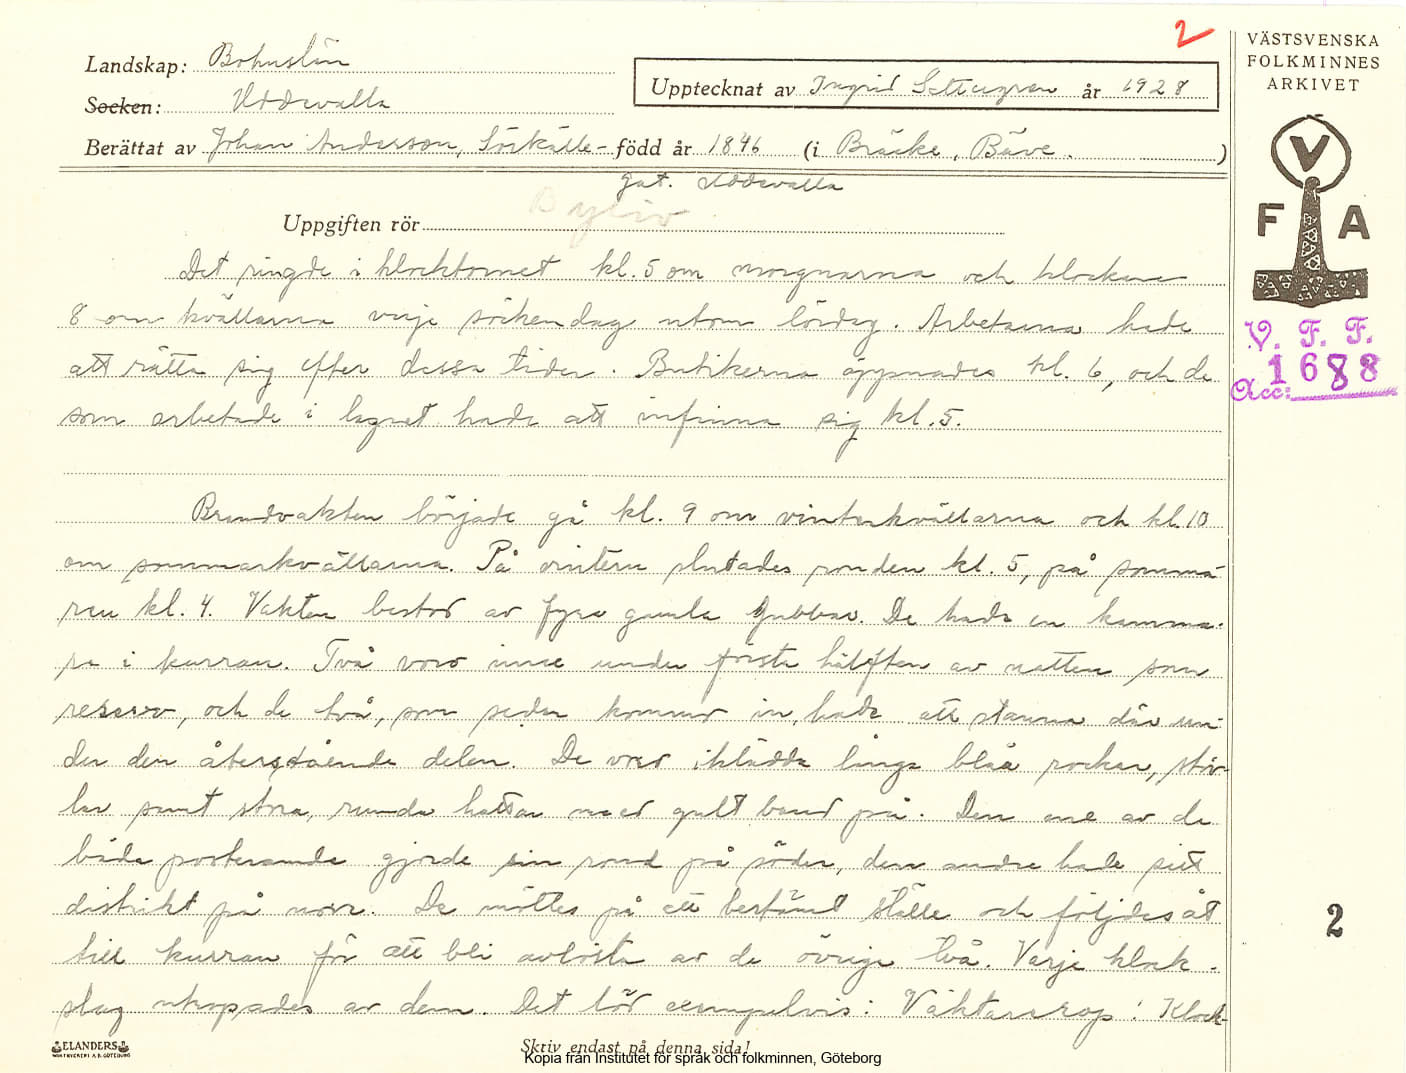 2
VÄSTSVENSKA
FOLKMINNES
ARKIVET
Landskap: Bohuslän
Upptecknat av Ingrid år 1928
Socken: Uddevalla
Berättat av Johan Anderson, Sörkälle- född år 1846 (i Bräcke, Bäve.)
gat. Uddevalla
V
F A
Byliv
Uppgiften rör
Det ringde i klocktornet kl. 5 om morgnarna och klockan
8 om kvällarna varje söckendag utom lördag. Arbetarna hade
att rätta sig efter dessa tider. Butikerna öppnades kl. 6, och de
som arbetade i lagret hade att infinna sig kl. 5.
V. F. F.
Acc: 1688
Brandvakten började gå kl. 9 om vinterkvällarna och kl. 10
om sommarkvällarna. På vintern slutades ronden kl. 5, på somma-
ren kl. 4. Vakten bestod av fyra gamla gubbar. De hade en kamma-
re i kurran. Två voro inne under första hälften av natten som
reserv, och de två, som sedan kommo in, hade att stanna där un-
der den återstående delen. De voro iklädda långa blåa rockar, stöv-
lar samt stora, runda hattar med gult band på. Den ene av de
båda posterande gjorde sin rond på söder, den andre hade sitt
distrikt på norr. De möttes på ett bestämt ställe och följdes åt
till kurran för att bli avlösta av de övriga två. Varje klock-
slag utropades av dem. Det löd exempelvis: Väktarerop! Klock-
2
ELANDERS
BOKTRYCKERI A.B. GÖTEBORG
Skriv endast på denna sida!
Kopia från Institutet för språk och folkminnen, Göteborg